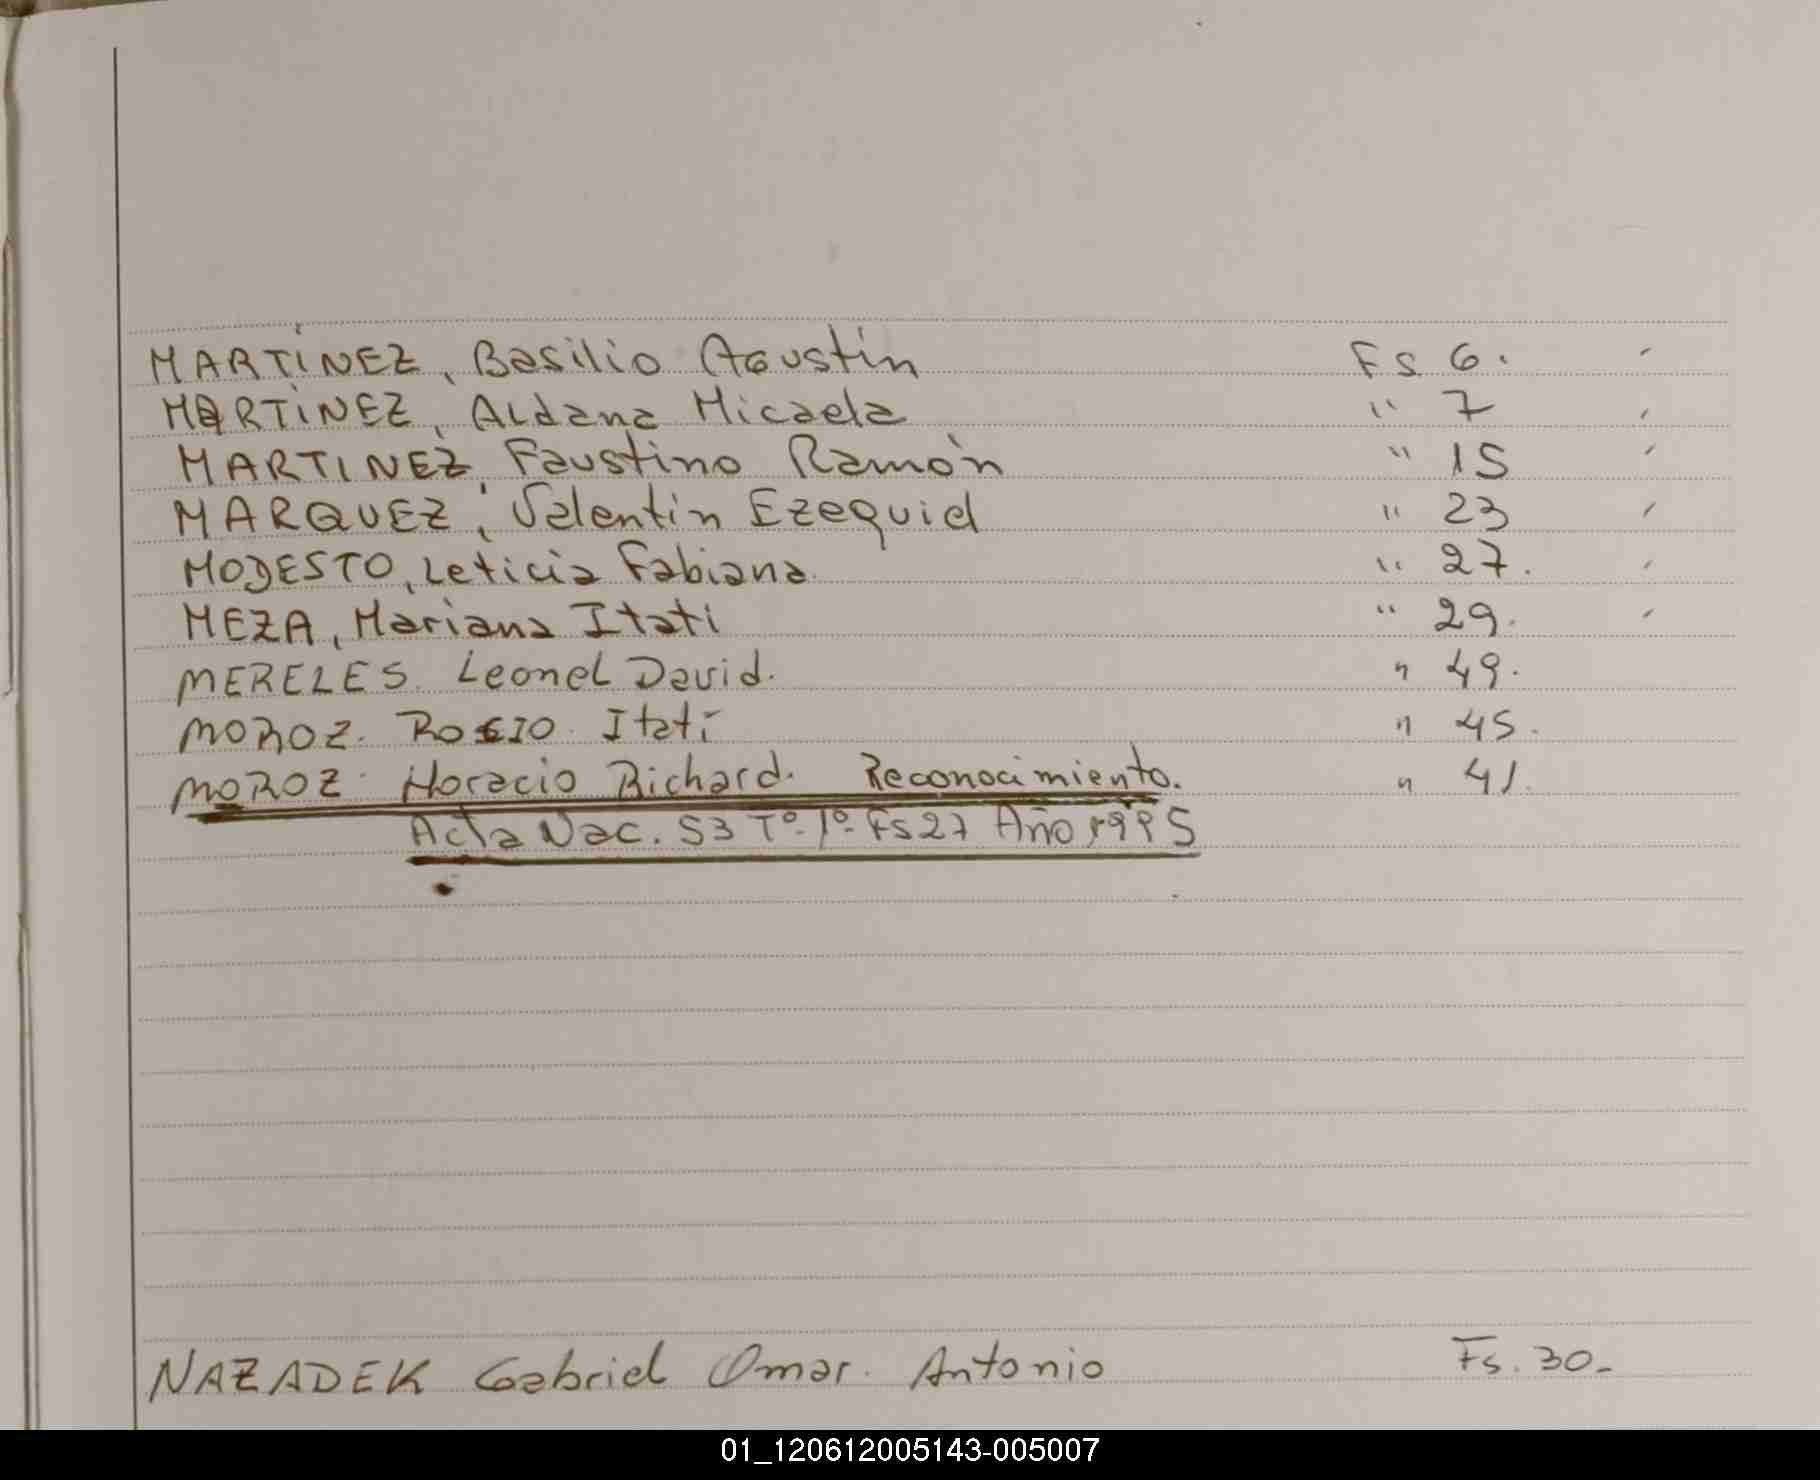 MARTINEZ, Basilio Agustín Fs. 6.
MARTINEZ, Aldana Micaela " 7
MARTINEZ, Faustino Ramón " 15
MARQUEZ, Valentín Ezequiel " 23
MODESTO, Leticia Fabiana. " 27.
MEZA, Mariana Itati " 29.
MERELES. Leonel David. " 49.
MOROZ. ROCIO. Itatí " 45.
MOROZ. Horacio Richard. Reconocimiento. " 41.
Acta Nac. 53 Tº. 1º. Fs 27 Año 1995
NAZADEK Gabriel Omar. Antonio Fs. 30.-
01_120612005143-005007